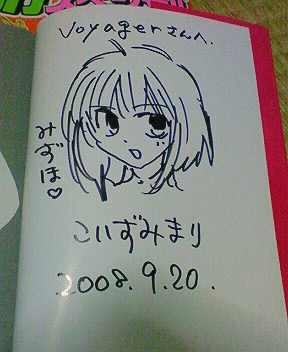 Voyagerさんへ.
みずほ♡
こいずみまり
2008.9.20.